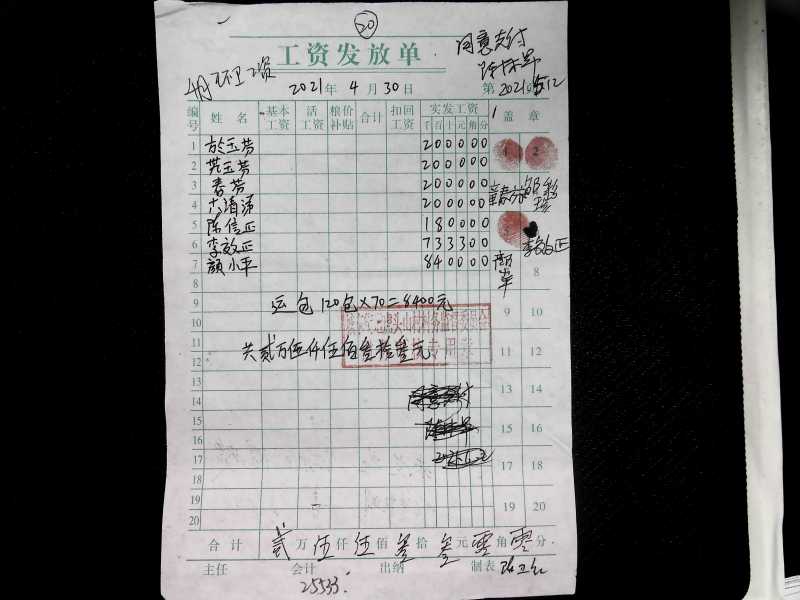 20
工资发放单
同意支付
4月环卫工资
2021年4月30日
第2021.5.12
编号 姓名 基本工资 活工资 粮价补贴 合计 扣回工资 实发工资 盖章
千 百 十 元 角 分
1 於玉芳 200000 1 2
2 范玉芳 200000
3 春芳 200000
4 200000
5 陈信正 180000
6 李效正 733300 李效正
7 颜小平 840000
8 8
9 运包120包×70=8400元 9 10
10
11 共贰万伍仟伍佰叁拾叁元 11 12
12
13 13 14
14 同意支付
15 15 16
16
17 17 18
18
19 19 20
20
合计 贰万伍仟伍佰叁拾叁元零角零分
主任 会计 出纳 制表
25533.